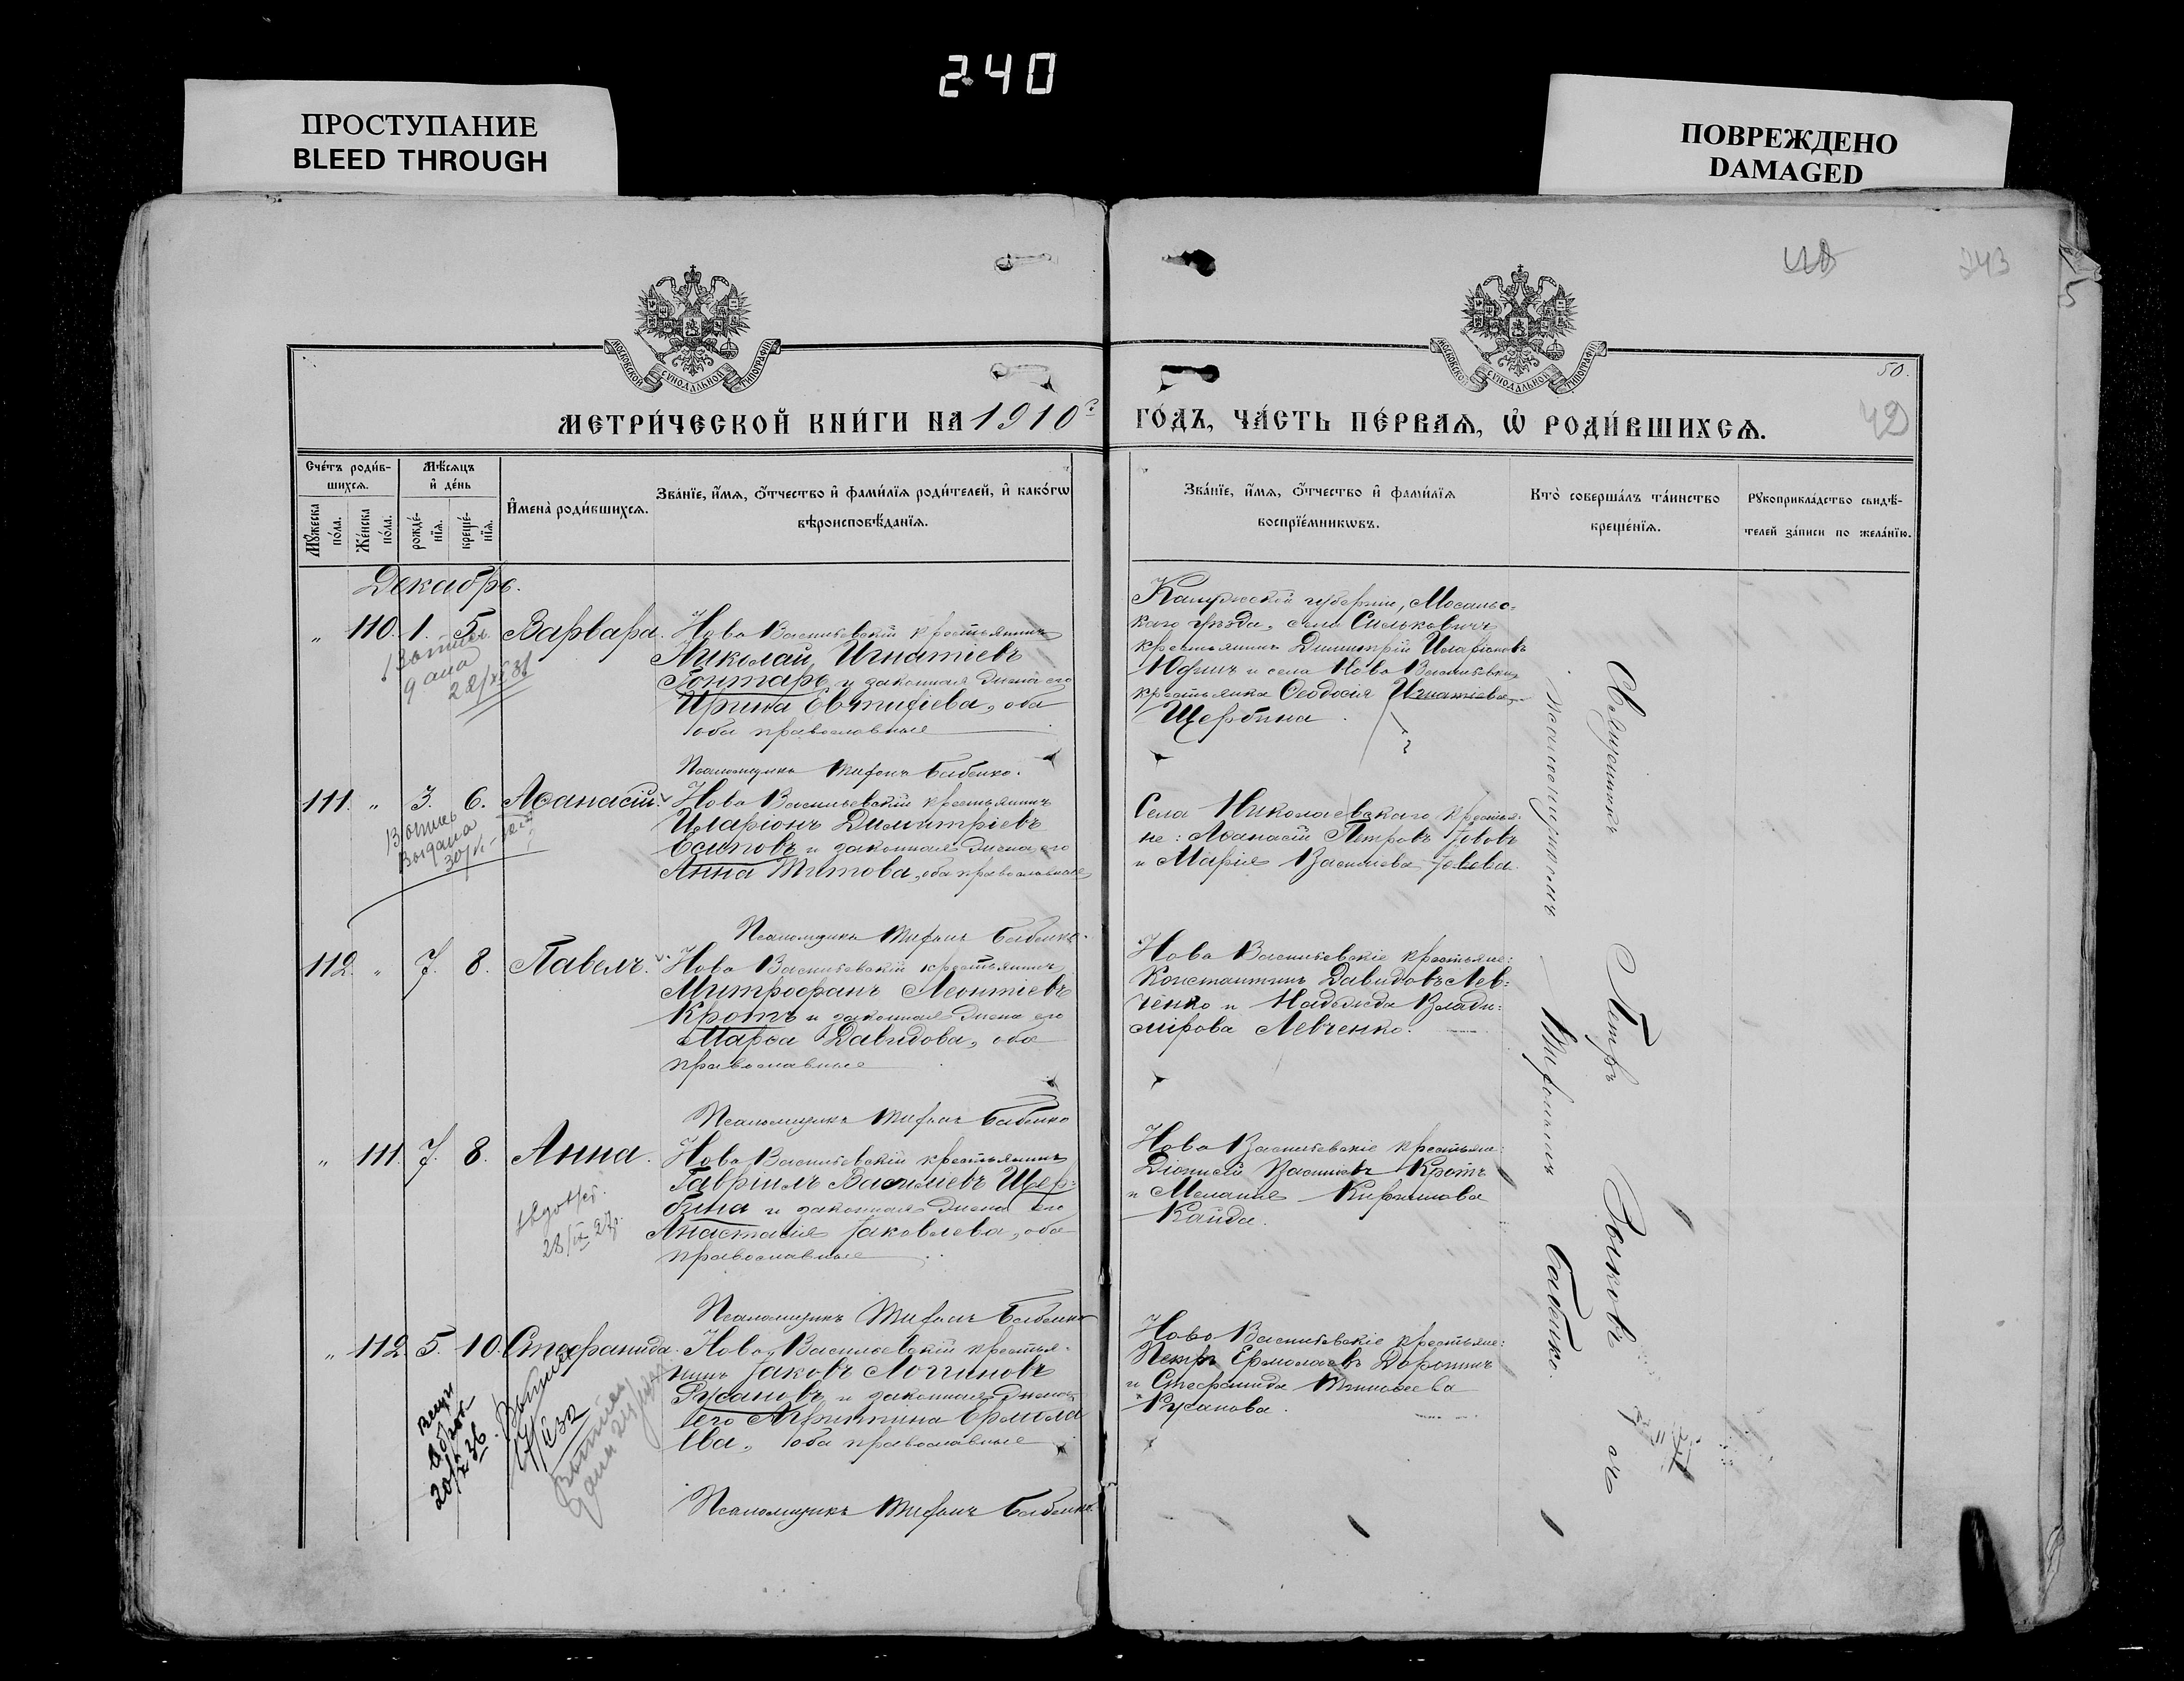 240
ПРОСТУПАНИЕ
BLEED THROUGH
ПОВРЕЖДЕНО
DAMAGED
243
50.
МОСКОВСКОЙ СѴНОДАЛЬНОЙ ТИПОГРАФІИ
МОСКОВСКОЙ СѴНОДАЛЬНОЙ ТИПОГРАФІИ
МЕТРИ́ЧЕСКОЙ КНИ́ГИ НА 1910 г.
ГО́ДЪ, ЧА́СТЬ ПЕ́РВАѦ, Ѡ҆ РОДИ́ВШИХСѦ.
42
Сче́тъ роди́в-
шихсѧ.
Мꙋ́жеска по́ла.
Же́нска по́ла.
Мѣ́сѧцъ
и҆ де́нь
рожде́-
нїѧ.
креще́-
нїѧ.
И҆мена̀ роди́вшихсѧ.
Зва́нїе, и҆́мѧ, ѻ҆́тчество и҆ фами́лїѧ роди́телей, и҆ како́гѡ
вѣроисповѣ́данїѧ.
Зва́нїе, и҆́мѧ, ѻ҆́тчество и҆ фами́лїѧ
воспрїе́мникѡвъ.
Кто̀ соверша́лъ та́инство
креще́нїѧ.
Рꙋкоприкла́дство свидѣ́-
телей за́писи по жела́нїю.
Декабрь.
" 110. 1. 5. Варвара. Ново Васильевскій крестьянинъ
Николай Игнатіевъ
Гонтарь и законная жена его
Ирина Евтифіева, оба
оба православные
Псаломщикъ Тифонъ Бабенко.
Калужской губерніи, Мосальс=
каго уѣзда, села Сильковичъ
крестьянинъ Димитрій Иларіоновъ
Юдинъ и села Ново Васильевки
крестьянка Ѳеодосія Игнатіева
Щербина.
22/XI 36
111. " 3. 6. Аѳанасій. Ново Васильевскій крестьянинъ
Иларіонъ Димитріевъ
Осиповъ и законная жена его
Анна Титова, оба православные
Псаломщикъ Тифонъ Бабенко.
Села Николаевскаго крестья=
не: Аѳанасій Петровъ Іововъ
и Марія Васильева Іовова.
Выдана
112. " 7. 8. Павелъ. Ново Васильевскій крестьянинъ
Митрофанъ Леонтіевъ
Кротъ и законная жена его
Марѳа Давидова, оба
православные
Псаломщикъ Тифонъ Бабенко
Ново Васильевскіе крестьяне:
Константинъ Давидовъ Лев=
ченко и Надежда Влади=
мірова Левченко.
" 111. 7. 8. Анна. Ново Васильевскій крестьянинъ
Гавріилъ Васильевъ Щер=
бина и законная жена его
Анастасія Іаковлева, оба
православные
Псаломщикъ Тифонъ Бабенко
Ново Васильевскіе крестьяне:
Діонисій Васильевъ Кротъ
и Меланія Кириллова
Кайда.
28/IX 27 г.
" 112. 5. 10. Стефанида. Ново Васильевскій крестья=
нинъ Іаковъ Логгиновъ
Русановъ и законная жена
его Агриппина Ермола
ева, оба православные
Псаломщикъ Тифонъ Бабенко.
Ново Васильевскіе крестьяне:
Петръ Ермолаевъ Доронинъ
и Стефанида Тимоѳеева
Русанова.
Священникъ Петръ Волковъ съ
псаломщикомъ Тифономъ Бабенко.